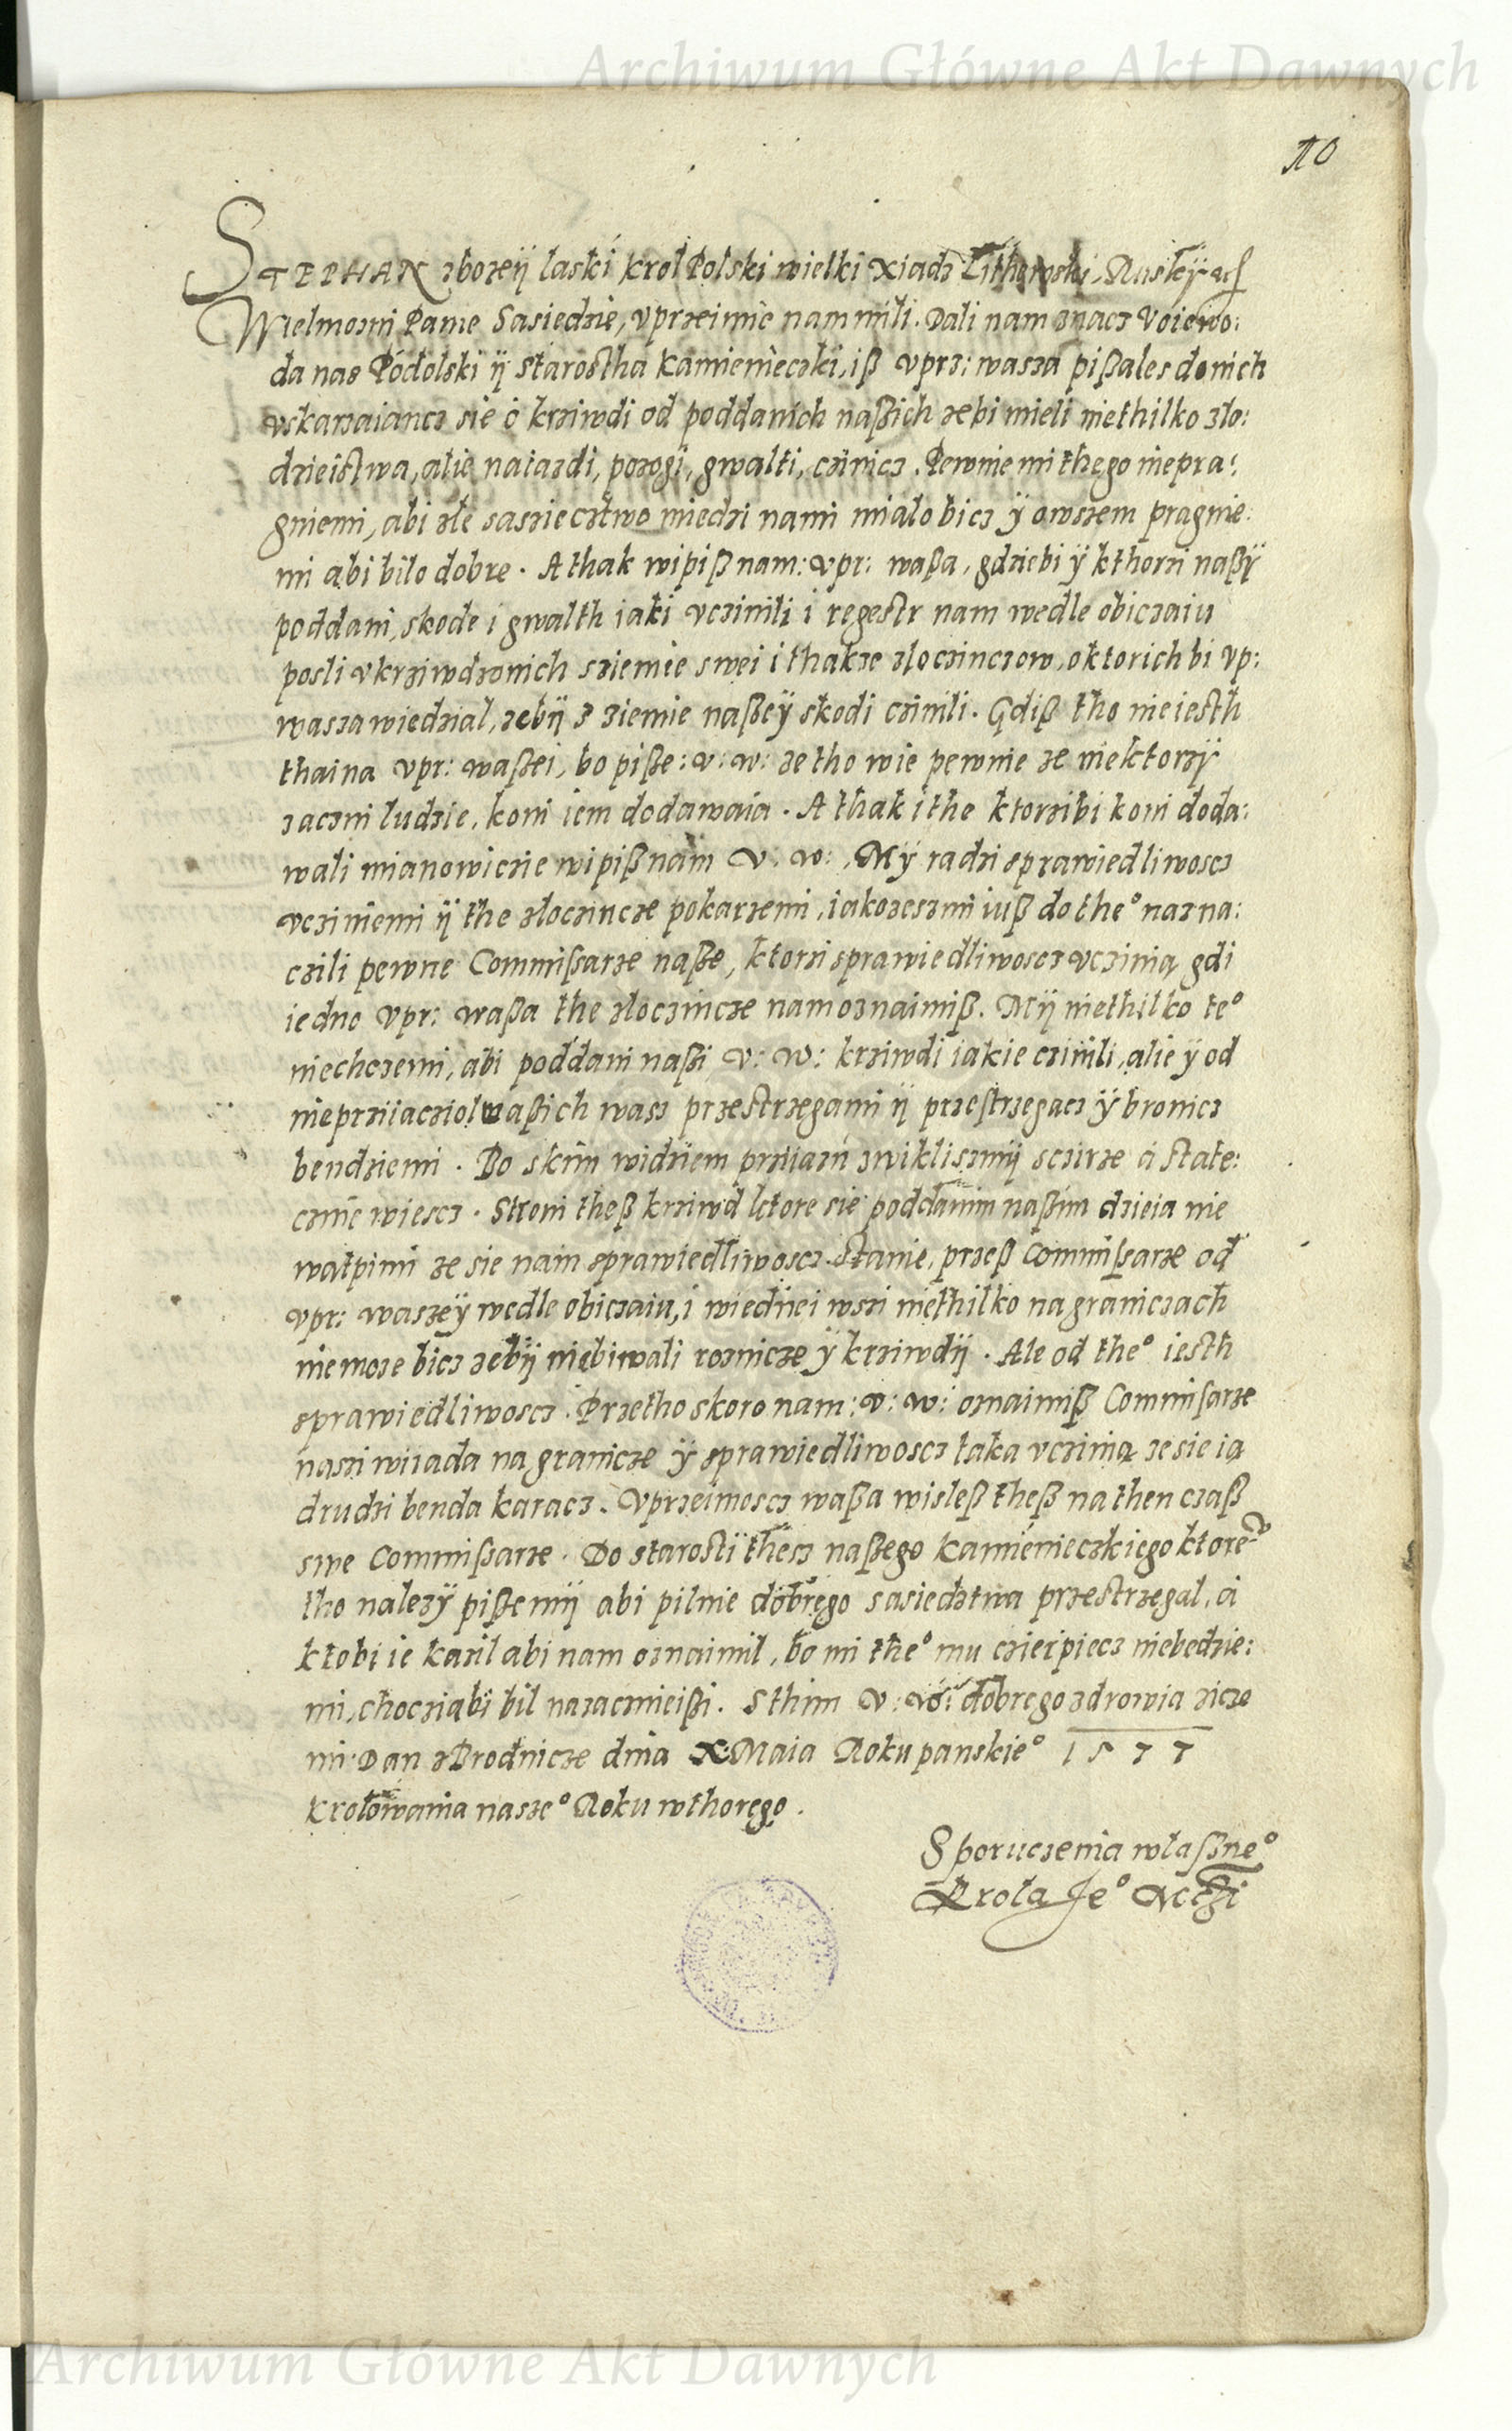 Archiwum Główne Akt Dawnych
10
STEPHAN zbozeÿ łaski krol Polski wielki xiadz Lithewski, Ruskÿ etc
Wielmozni Panie Sasiedzie, vprzeimie nam mili. Dali nam znacz Voiewo:
da nas Podolski ÿ Starostha Kamienieczki, iß vprz: wasza pißales do nich
vskarzaiancz sie o krziwdi od poddanich naßich zebi mieli niethilko zlo:
dzieistwa, alie naiazdi, pozogi, gwalti, czinicz. Pewnie mi thego niepra:
gniemi, abi złe sasziecztwo miedzi nami miało bicz ÿ owszem pragnie:
mi abi bilo dobre. A thak wipiß nam: vpr: waßa, gdziebi ÿ kthorzi naßÿ
poddani, skode i gwalth iaki vczinili i regestr nam wedle obiczaiu
posli vkrziwdzonich sziemie swei i thakze zloczinczow, o ktorich bi vp:
wasza wiedzial, zebÿ z ziemie naßeÿ skodi czinili. Gdiß tho nieiesth
thaina vpr: waßei, bo piße: v: w: ze tho wie pewnie ze niektorzÿ
zaczni ludzie, koni iem dodawaia. A thak i the ktorzibi koni doda:
wali mianowiczie wipiß nam v: w: Mÿ radzi sprawiedliwoscz
vcziniemi ÿ the złoczincze pokarzemi, iakozeszmi iuß do the° nazna:
czili pewne Commißarze naße, ktorzi sprawiedliwoscz vczinią gdi
iedno vpr: waßa the złoczincze nam oznaimiß. Mÿ niethilko te°
niechczemi, abi poddani naßi v: w: krziwdi iakie czinili, alie ÿ od
nieprziiacziol waßich wasz przestrzegami ÿ przestrzegacz ÿ bronicz
bendziemi. Bo skim widziem prziiazń zwikliszmÿ sczirze a state:
cznie wiescz. Stroni theß krziwd ktore sie poddanim naßim dzieia nie
watpimi ze sie nam sprawiedliwoscz stanie, przeß Commißarze od
vpr: waszeÿ wedle obiczaiu, i wiednei wszi niethilko na graniczach
niemoze bicz zebÿ niebiwali roznicze ÿ krziwdÿ. Ale od the° iesth
sprawiedliwoscz. Przetho skoro nam: v: w: oznaimiß Commißarze
naszi wiiada na granicze ÿ sprawiedliwoscz taka vczinią ze sie ią
drudzi benda karacz. Vprzeimoscz waßa wisleß theß na then czaß
swe Commißarze. Do starostÿ thesz naßego Kamienieczkiego ktore°
tho nalezÿ pißemÿ abi pilnie dobrego sasiedztwa przestrzegal, a
ktobi ie kazil abi nam oznaimil, bo mi the° mu czierpiecz niebedzie:
mi, chocziabi bil nazacznieißi. S thim v: w: dobrego zdrowia zicze
mi. Dan z Brodnicze dnia X Maia Roku panskie° 1577
Krolowania nasze° Roku wthorego.
S poruczenia własne°
Krola Je° Mczi
Archiwum Główne Akt Dawnych